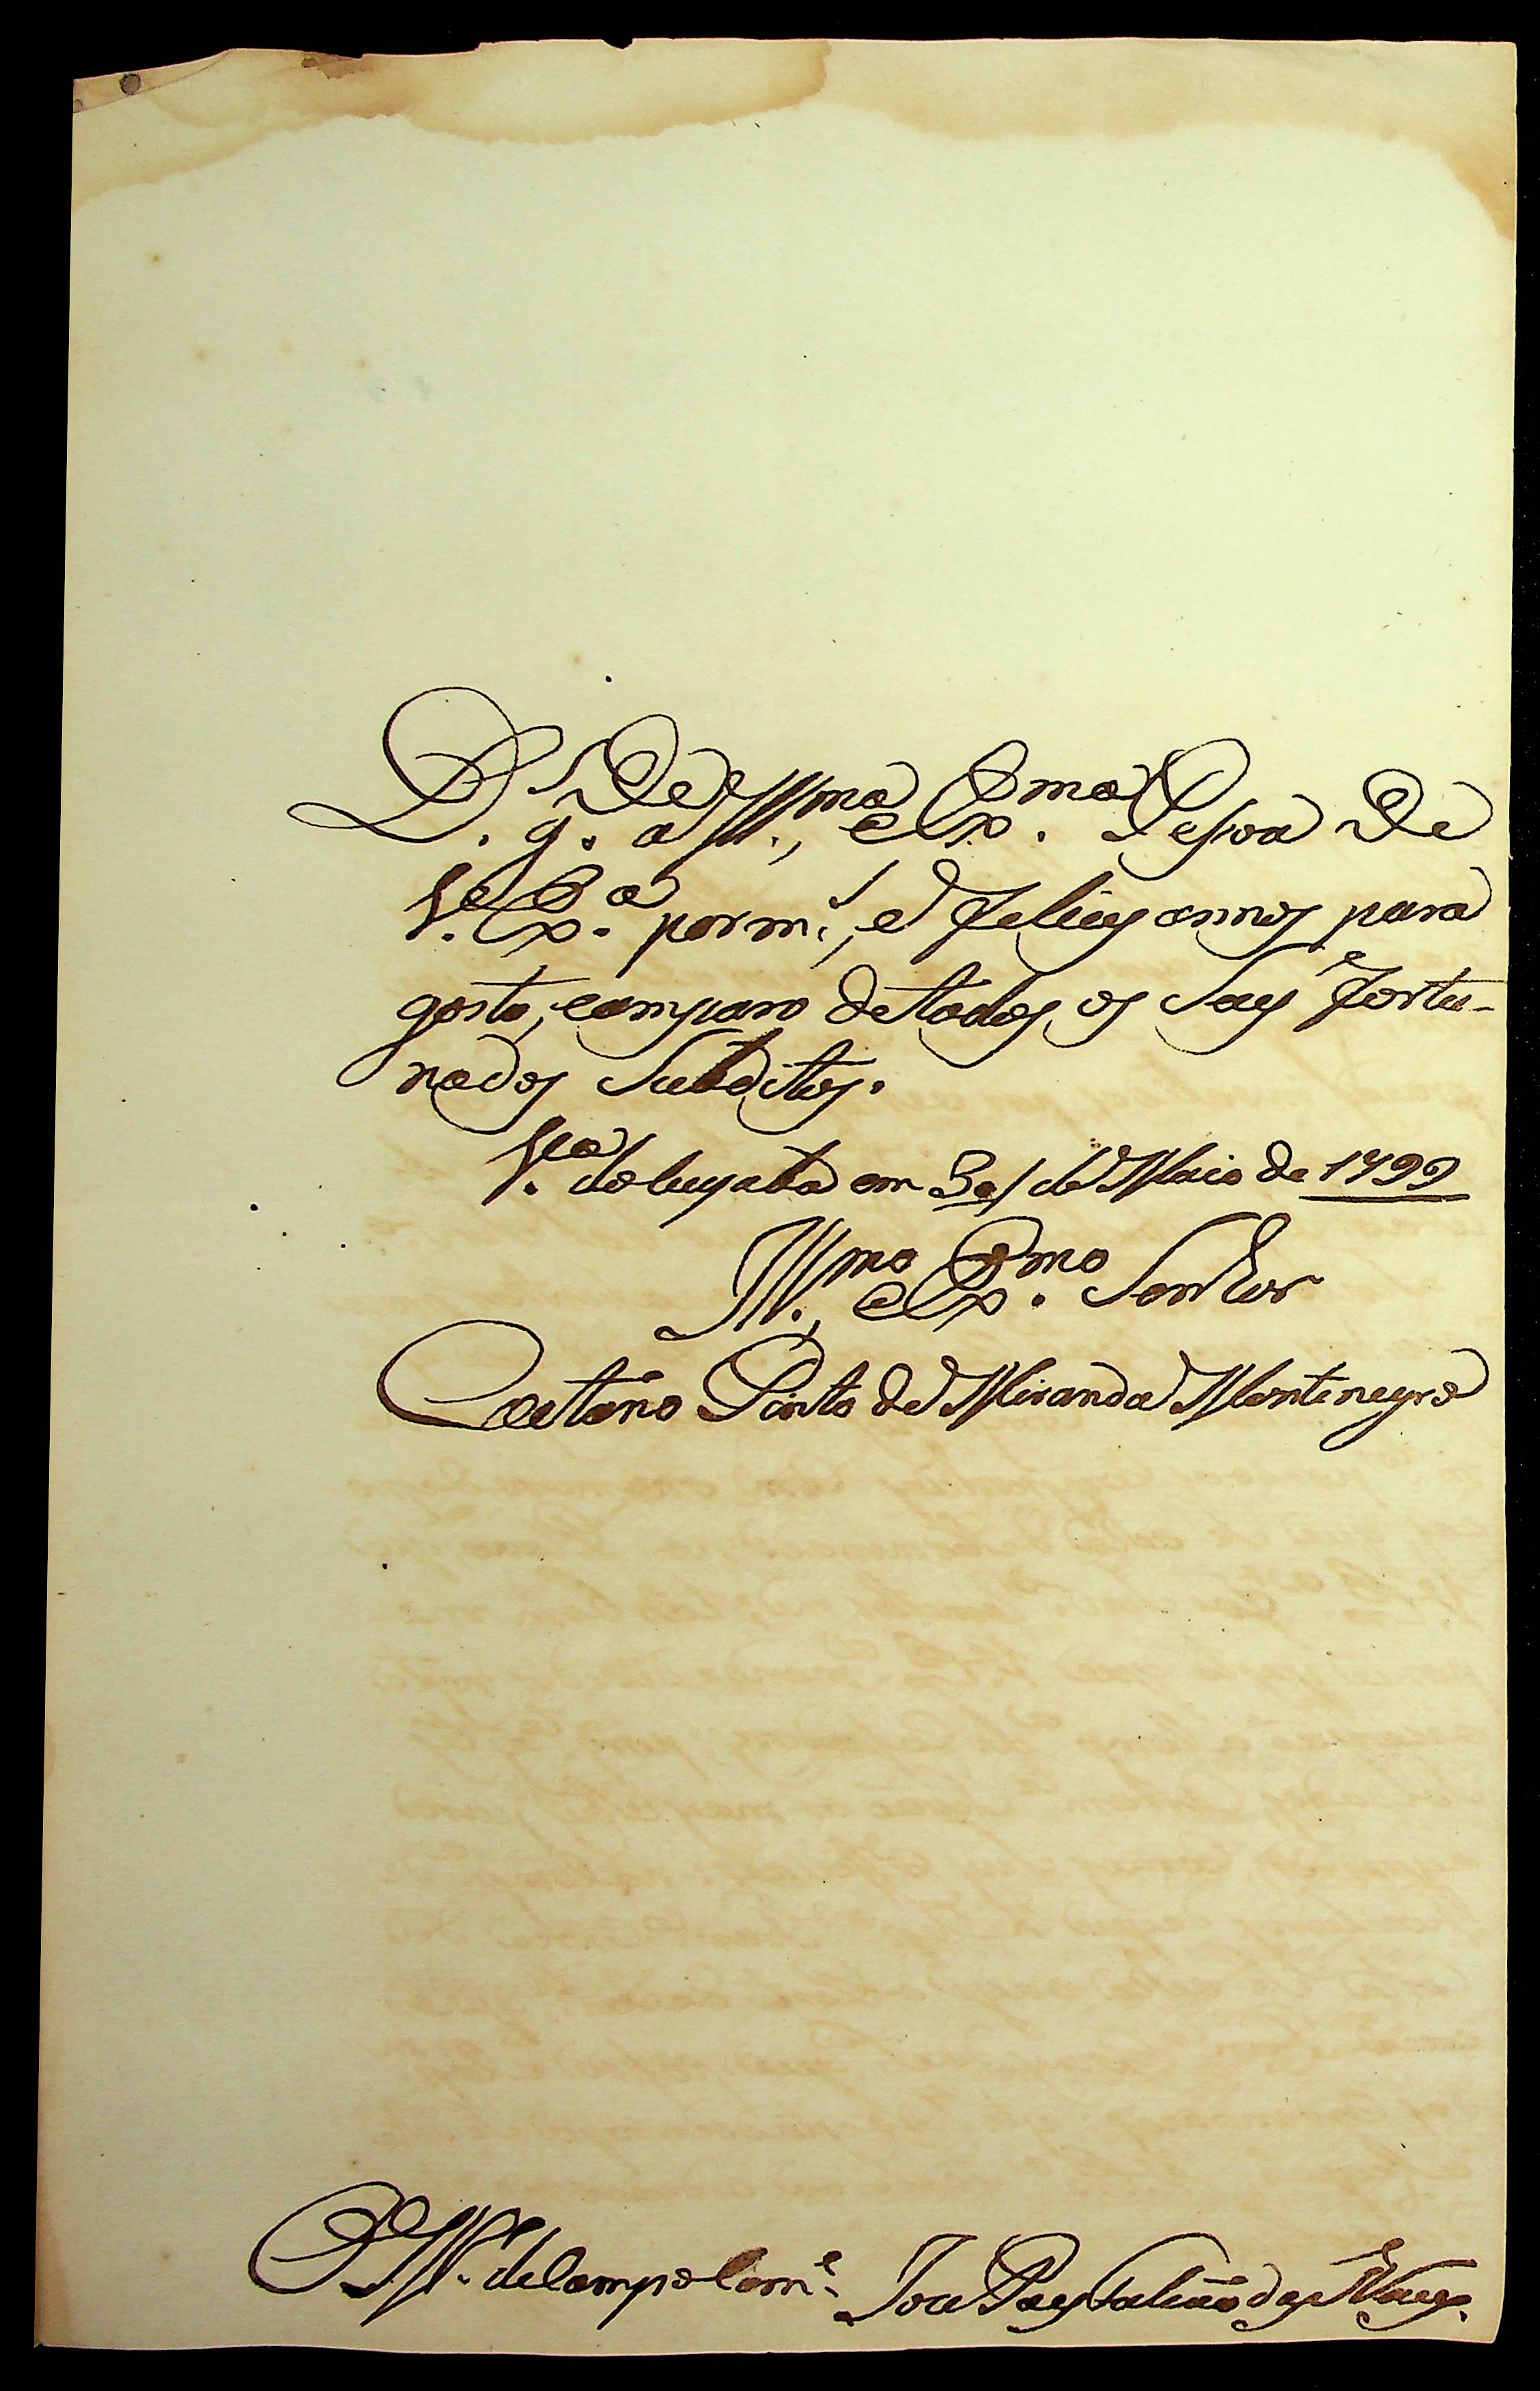 D.s g.de a Ill.ma, e Ex.ma Pesoa de
V. Ex.a por m.s, e Felices annos para
gosto, e amparo de todos os Seus Fortu-
nados Subditos.
V.a do Cuyaba em 30 de Maio de 1799
Ill.mo, e Ex.mo Senhor
Caetano Pinto de Miranda Montenegro
M. de Campo Com.e Joze Paes Falcão das Neves.